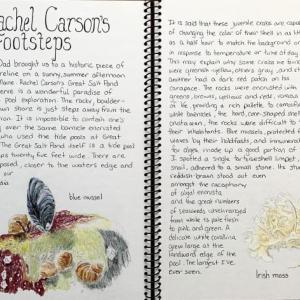 achel Carson's
ootsteps
Dad brought us to a historic piece of
reline on a sunny, summer afternoon
Maine. Rachel Carson's Great Salt Pond
erve is a wonderful paradise of
pool exploration. The rocky, boulder-
own shore is just steps away from the
on. It is impossible to contain one's
over the same barnacle encrusted
who used the tide pools at Great
The Great Salt Pond itself is a tide pool
ps twenty five feet wide. There are
posed, closer to the waters edge and
sur
dsid
blue mussel
It is said that these juvenile crabs are capable
of changing the color of their shell in as little
as a half hour to match the background or
in response to temperature or time of day.
This may explain why some crabs we found
were greenish-yellow, others gray and
another had a dark red patch on his
carapace. The rocks were encrusted with
greens, browns, yellows and reds, various
of life, providing a rich palette to camouflage
white barnacles, the hard, cone-shaped shells
crustaceans, the rocks were difficult to
their inhabitants. Blue mussels, protected
waves by their holdfasts, and
for algae, made up a good portion of
I spotted a single tortoiseshell limpet,
snail, adhered to a small stone. Its
reddish brown stood out even
amongst the cacophony
of algal encrusta
and the great numbers
of seaweeds which ranged
from white to pale flesh
to pink and green. A
delicate white coralina
grew large at the
landward edge of the
pool. The largest I've
ever seen.
Irish moss